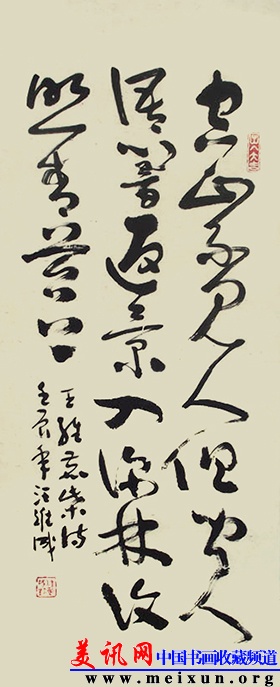 空山不見人但聞人
語響返景入深林復
照青苔上
王維鹿柴詩
壬辰年汪維
美讯网 中国书画收藏频道
www.meixun.org